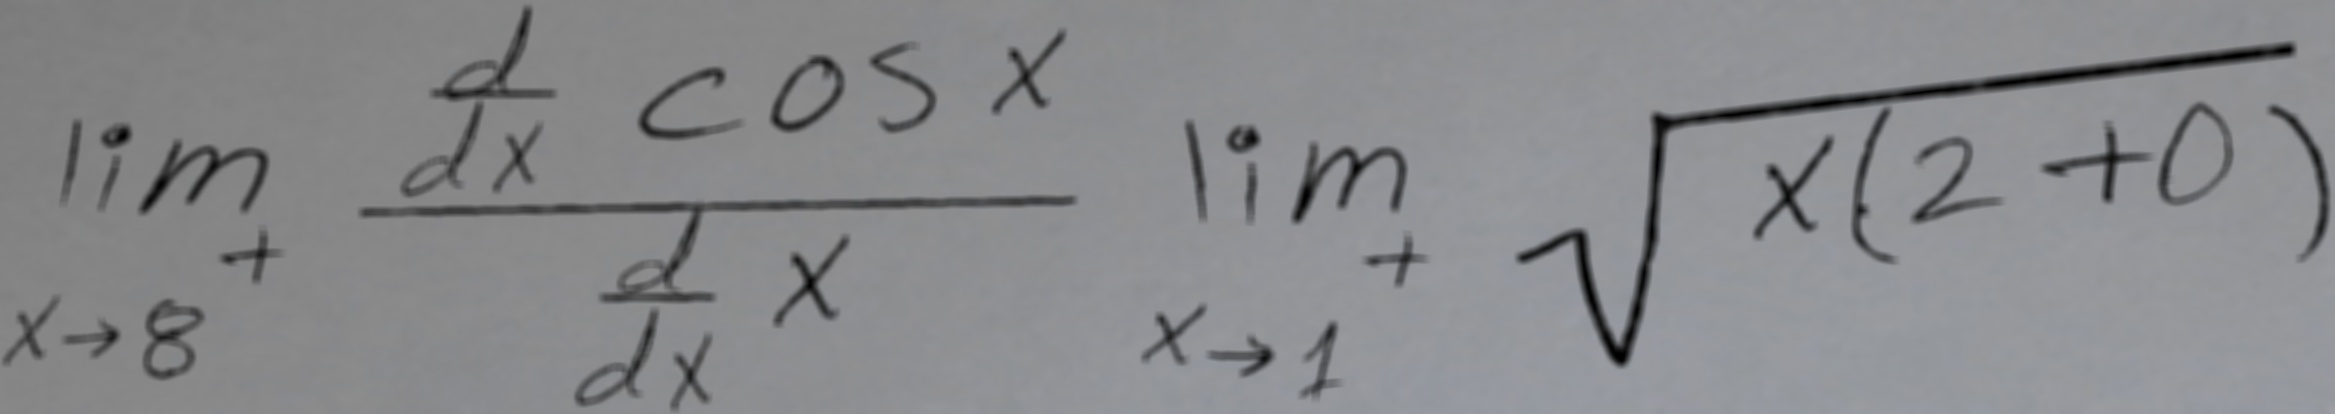 \lim_{x \to 8^+} \frac{\frac{d}{dx} \cos x}{\frac{d}{dx} x} \lim_{x \to 1^+} \sqrt{x(2+0)}